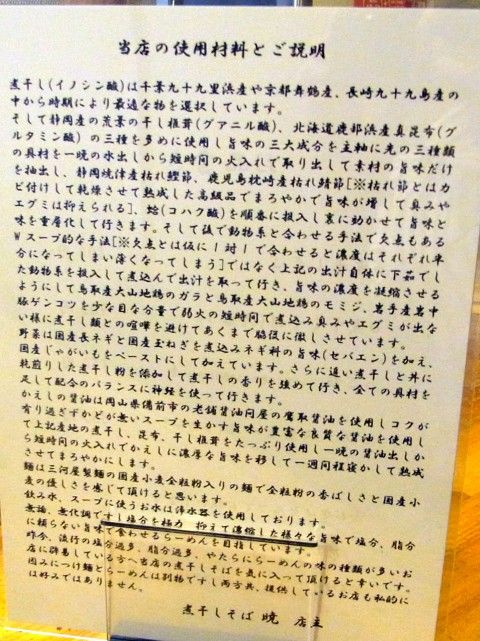 当店の使用材料とご説明
煮干し(イノシン酸)は千葉九十九里浜産や京都舞鶴産、長崎九十九島産の
中から時期により最適な物を選択しています。
そして静岡産の荒葉の干し椎茸(グアニル酸)、北海道鹿部浜産真昆布(グ
ルタミン酸)の三種を多めに使用し旨味の三大成分を主軸に先の三種類
の具材を一晩の水出しから短時間の火入れで取り出して素材の旨味だけ
を抽出し、静岡焼津産枯れ鰹節、鹿児島枕崎産枯れ鯖節[※枯れ節とはカ
ビ付けして乾燥させて熟成した高級品でまろやかで旨味が増して臭みや
エグミは抑えられる]、蛤(コハク酸)を順番に投入し裏に動かせて旨味と
味を重層化して行きます。そして後で動物系と合わせる手法で欠点もある
Wスープ的な手法[※欠点とは仮に1対1で合わせると濃度はそれぞれ半
分になってしまい薄くなってしまう]ではなく上記の出汁自体に下茹でし
た動物系を投入して煮込んで出汁を取って行き、旨味の濃度を凝縮させる
ようにして鳥取産大山地鶏のガラと鳥取産大山地鶏のモミジ、岩手産岩中
豚ゲンコツを少な目な分量で弱火の短時間で煮込み臭みやエグミが出な
い様に煮干し麺との喧嘩を避けてあくまで脇役に徹しさせています。
野菜は国産長ネギと国産玉ねぎを煮込みネギ科の旨味(セバエン)を加え、
国産じゃがいもをペーストにして加えています。さらに追い煮干しと丼に
乾煎りした煮干し粉を添加して煮干しの香りを強めて行き、全ての具材を
足して配合のバランスに神経を使って行きます。
かえしの醤油は岡山県備前市の老舗醤油問屋の鷹取醤油を使用しコクが
有り過ぎずかどが無いスープを生かす旨味が豊富な良質な醤油を使用し
て上記産地の煮干し、昆布、干し椎茸をたっぷり使用し一晩の醤油出しか
ら短時間の火入れでかえしに濃厚な旨味を移して一週間程寝かして熟成
させてまろやかにします。
麺は三河屋製麺の国産小麦全粒粉入りの麺で全粒粉の香ばしさと国産小
麦の優しさを感じて頂けると思います。
飲み水、スープに使うお水は浄水器を使用しております。
無論、無化調ですし塩分を極力 抑えて凝縮した様々な旨味で塩分、脂分
に頼らない旨味で食わせるらーめんを目指しています。
昨今、流行の塩分過多、脂分過多、やたらにらーめんの味の種類が多いお
店に辟易している方へ当店の煮干しそばを気に入って頂けると幸いです。
因みにつけ麺とらーめんは別物ですし両方共、提供しているお店も私的に
は好みではありません。
煮干しそば 暁 店主